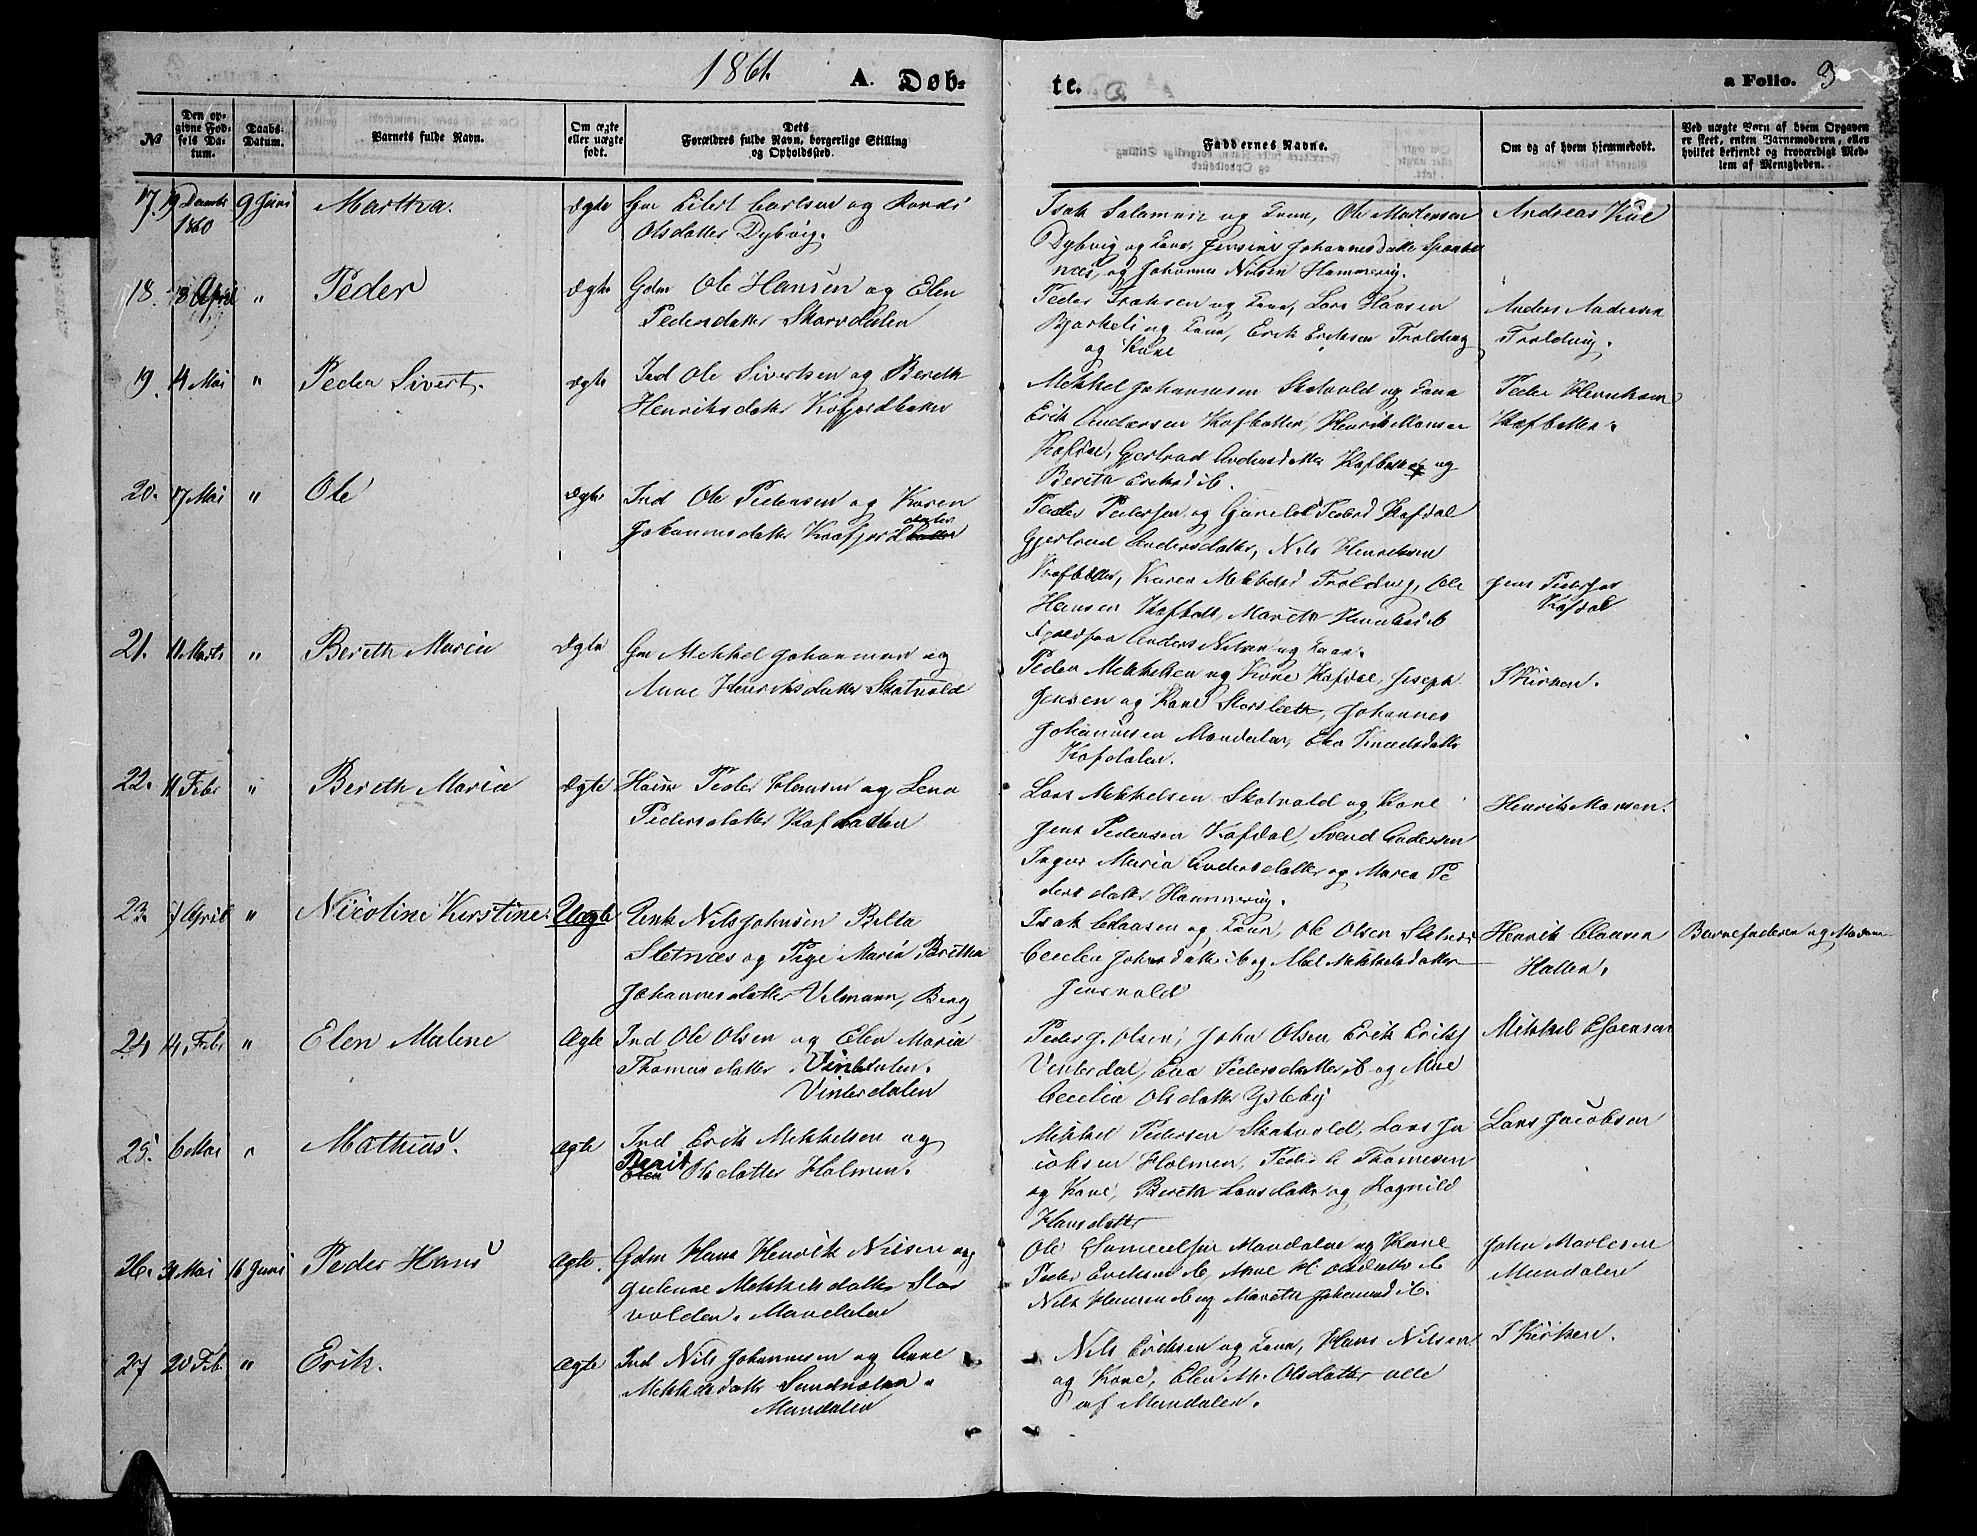 1861.
A. Døb-
te.
a Folio. 3
№
Den op-
givne Fød-
sels Da-
tum.
Daabs-
Datum.
Barnets fulde Navn.
Om ægte
eller uægte
født.
Dets
Forældres fulde Navn, borgerlige Stilling
og Opholdssted.
Faddernes Navne.
Om og af hvem hjemmedøbt.
Ved uægte Børn af hvem Opgaven
er skeet, enten Barnemoderen, eller
hvilket bekjendt og troværdigt Med-
lem af Menigheden.
17. 19 Decembr 1860
9 Juni
Martha.
Ægte
Gm Eilert Carlsen og
Olsdatter Dybvig.
Isak Salamsen og Kone, Ole Mortensen
Dybvig og Kone, Jensine Johannesdatter
næs, og Johannes Nilsen Hammervig.
Andreas
18. 13 April "
Peder
Ægte
Gdm Ole Hansen og Elen
Pedersdatter Skarvdalen
Peder Isaksen og Kone, Lars Hansen
Bjerkeli og Kone, Erik Eriksen Troldvig
og Kone
Anders Andersen
Troldvig.
19. 14 Mai "
Peder Sivert.
Ægte
Ind Ole Sivertsen og Bereth
Henriksdatter Kafjordbaten
Mekkel Johannesen Skatvold og Kone
Erik Andersen Kafbotten, Henrik Monsen
Kafdal, Gjertrud Andersdatter Kafbotten og
Bereta Eriksd ib.
Peder Henriksen
Kafbotten.
20. 17 Mai "
Ole
Ægte
Ind Ole Pedersen og Karen
Johannesdatter Kaafjorddalen
Peder Pedersen og Gunelol Pedersd Kafdal
Gjertrud Andersdatter, Nils Henriksen
Kafbotten, Karen Mekkelsd Troldvig, Ole
Hansen Kafbott, Mareth Henriksd ib
Anders Nilsen og Kone.
Jens Pedersen
Kafdal
21. 11 Marts "
Bereth Maria
Ægte
Gm Mekkel Johannesen og
Anne Henriksdatter Skatvold
Peder Mekkelsen og Kone Kafdal, Joseph
Jensen og Kone Storsleth, Johannes
Johannesen Mandalen, Elen Knudsdatter
Kafdalen.
I Kirken.
22. 11 Febr "
Bereth Maria
Ægte
Huusm Peder Hansen og Lena
Pedersdatter Kafbotten
Lars Mekkelsen Skatvold og Kone
Jens Pedersen Kafdal, Svend Andersen
Inger Maria Andersdatter og Maren Pe
dersdatter Hammervig.
Henrik Monsen.
23. 1 April "
Nicoline Kirstine.
Uægte
Enk Nils Johnsen Belta
Sletnæs og Pige Maria Bretha
Johannesdatter Velmann, Berg
Isak Claasen og Kone, Ole Olsen Sletnæs
Cecilia Johnsdatter ib og Abel Mekkelsdatter
Jensvold
Henrik Clausen
Hatten.
Barnefaderen og Moderen
24. 14 Febr "
Elen Malene
Ægte
Ind Ole Olsen og Elen Maria
Thomasdatter Vinterdalen.
Vinterdalen
Peder J. Olsen, John Olsen Erik Eriks
Vinterdal, Eva Pedersdatter ib og Ane
Cecilia Olsdatter Ysteby
Mikkel Esbensen
25. 6 Mai "
Mathias.
Ægte
Ind Erik Mekkelsen og
Berit
Elen Olsdatter Holmen.
Mekkel Pedersen Skatvold, Lars Ja
cobsen Holmen, Peder A Thomesen
og Kone, Bereth Larsdatter og Ragnild
Hansdatter
Lars Jacobsen
26. 31 Mai 16 Juni
Peder Hans
Ægte.
Gdm Hans Henrik Nilsen og
Gulenne Mekkelsdatter Stor
volden. Mandalen
Ole Samuelsen Mandalen og Kone
Peder Eriksen ib, Ane H. Olsdatter ib
Nils Hansen ib og Mareth Johannesd ib.
John Mortesen
Mandalen
27 20 Feb. "
Erik.
Ægte
Ind Nils Johannesen og Anne
Mekkelsdatter
Mandalen
Nils Eriksen og Kone, Hans Nilsen
og Kone, Elen M. Olsdatter alle
af Mandalen.
I Kirken.